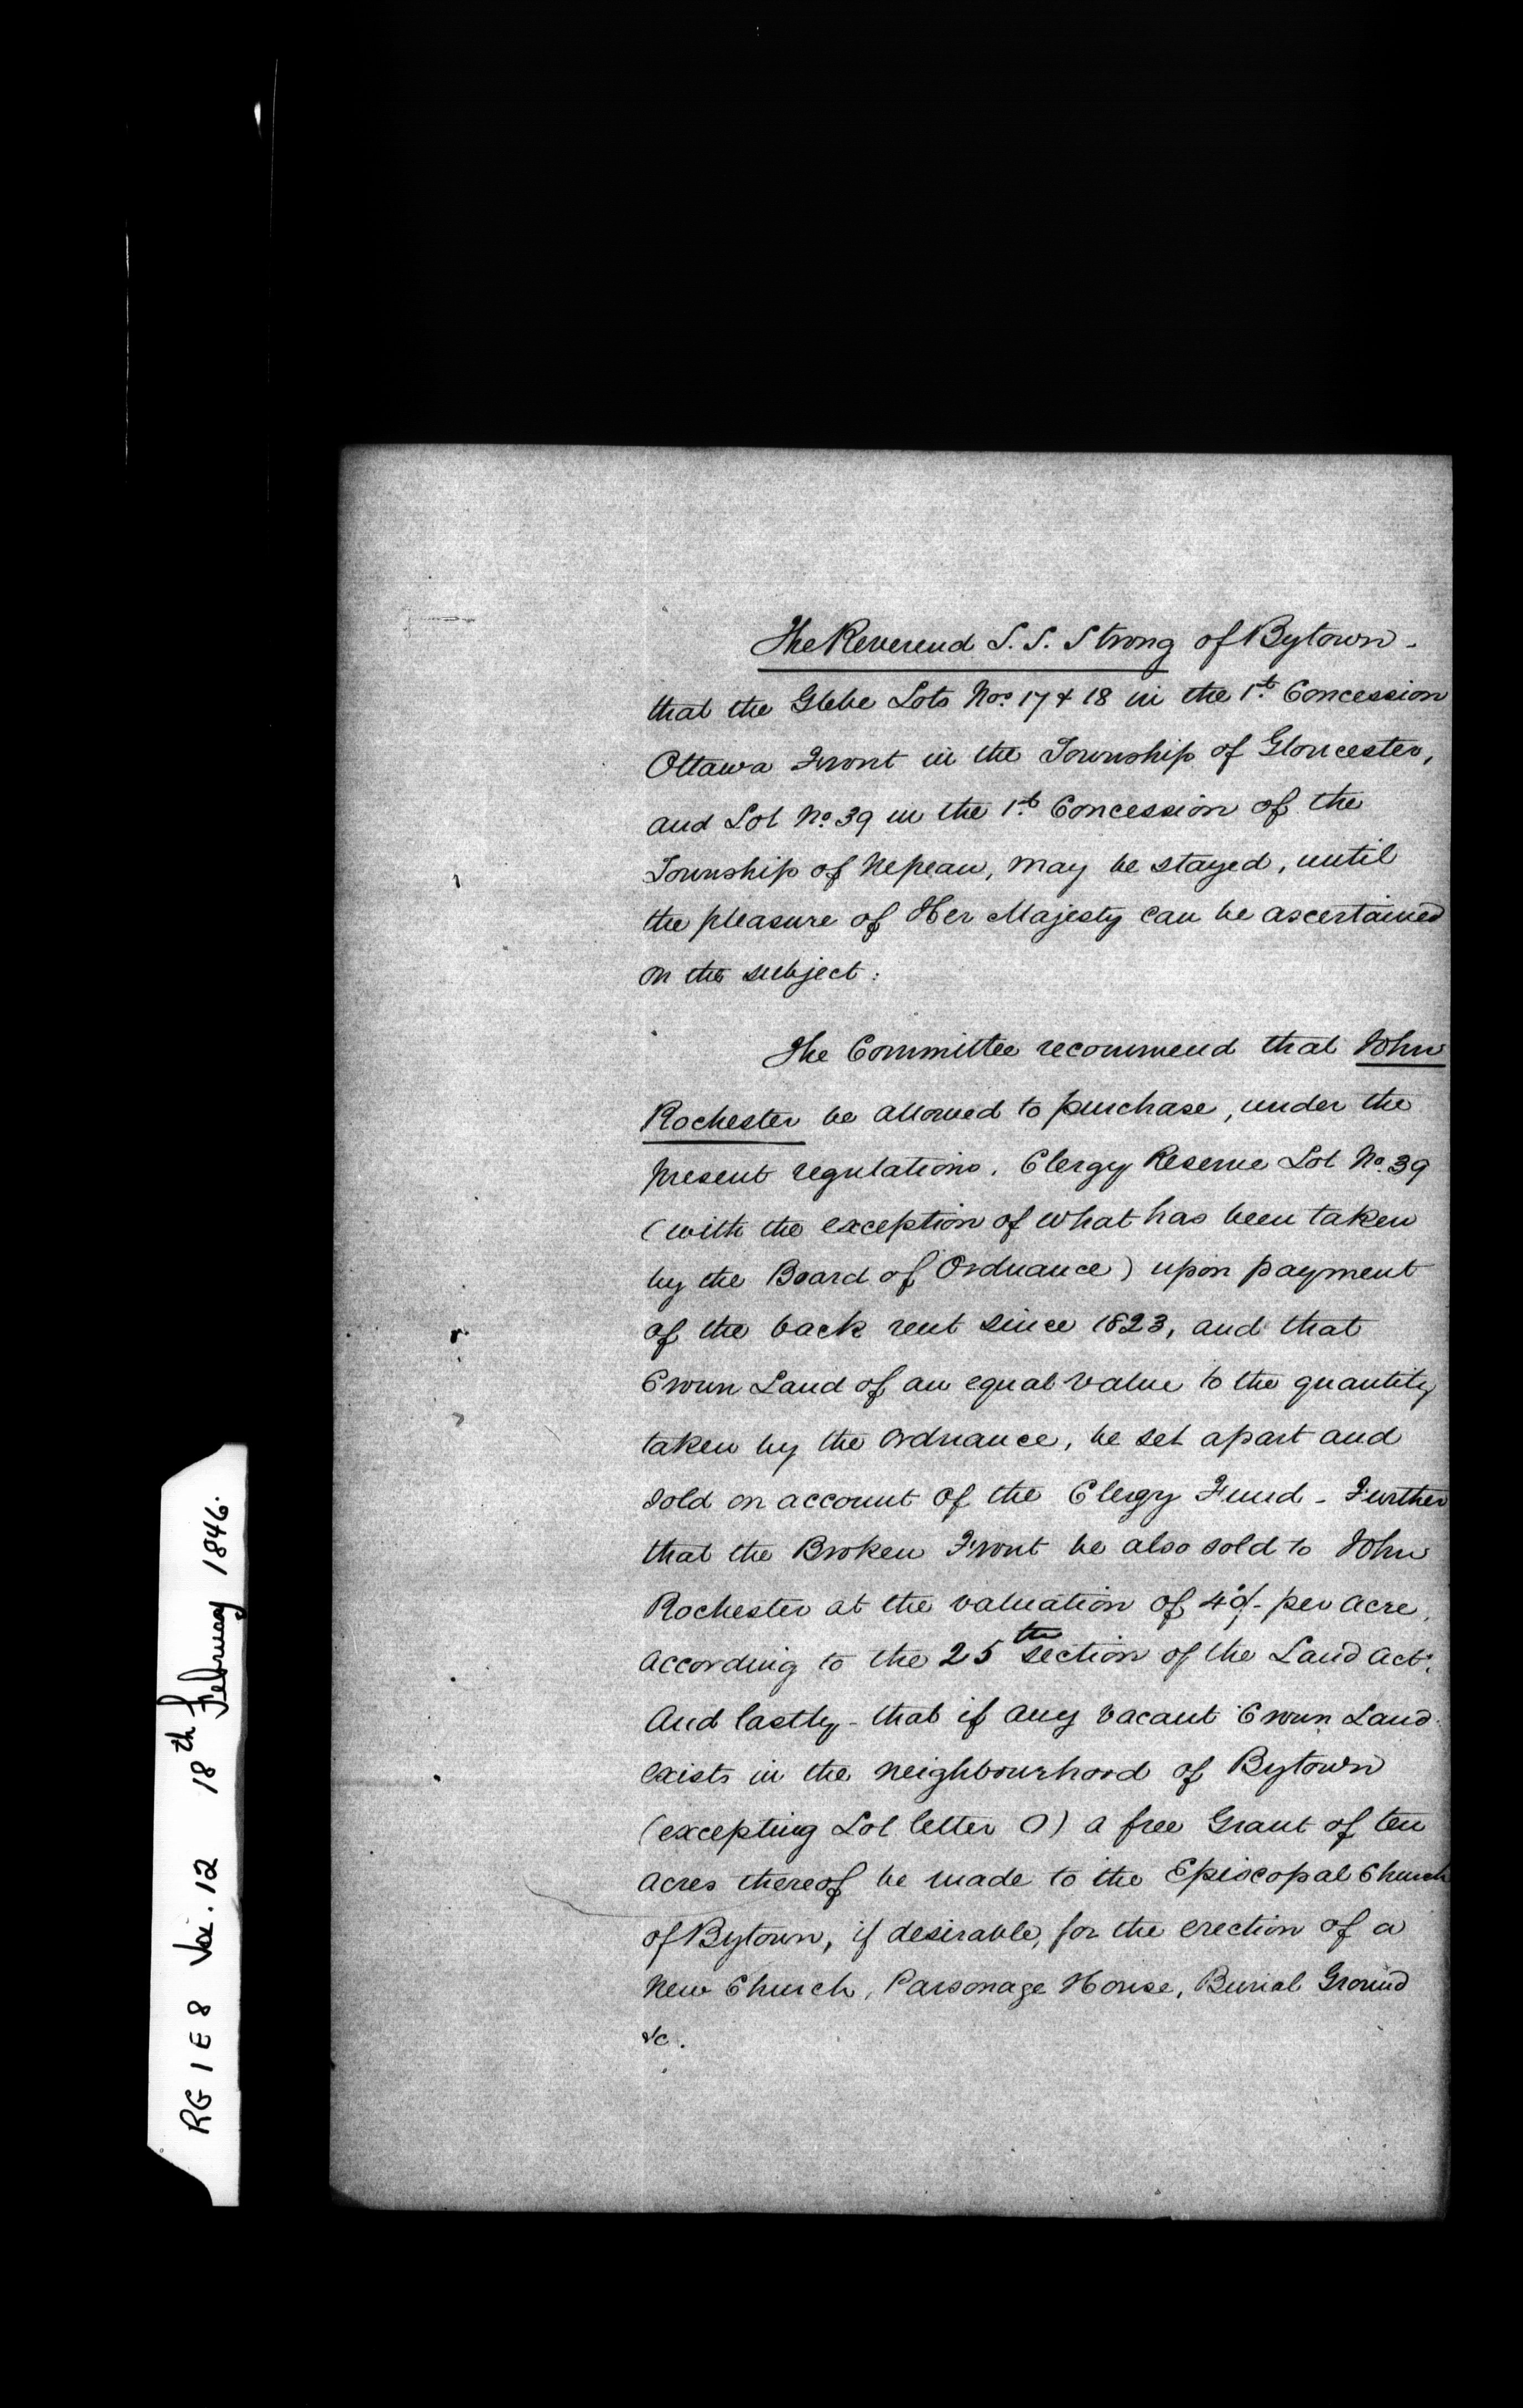 The Reverend S. S. Strong of Bytown -
that the Glebe Lots Nos. 17 & 18 in the 1st. Concession
Ottawa Front in the Township of Gloucester,
and Lot No. 39 in the 1st. Concession of the
Township of Nepean, may be stayed, until
the pleasure of Her Majesty can be ascertained
on the subject :
The Committee recommend that John
Rochester be allowed to purchase, under the
present regulations, Clergy Reserve Lot No. 39
(with the exception of what has been taken
by the Board of Ordnance) upon payment
of the back rent since 1823, and that
Crown Land of an equal value to the quantity
taken by the Ordnance, be set apart and
sold on account of the Clergy Fund - Further
that the Broken Front be also sold to John
Rochester at the valuation of per acre,
according to the 25th section of the Land Act:
And lastly - that if any vacant Crown Land
exists in the neighbourhood of Bytown
(excepting Lot letter O) a free Grant of ten
acres thereof be made to the Episcopal Church
of Bytown, if desirable, for the erection of a
New Church, Parsonage House, Burial Ground
&c.
RG 1 E 8 Vol. 12 18th February 1846.